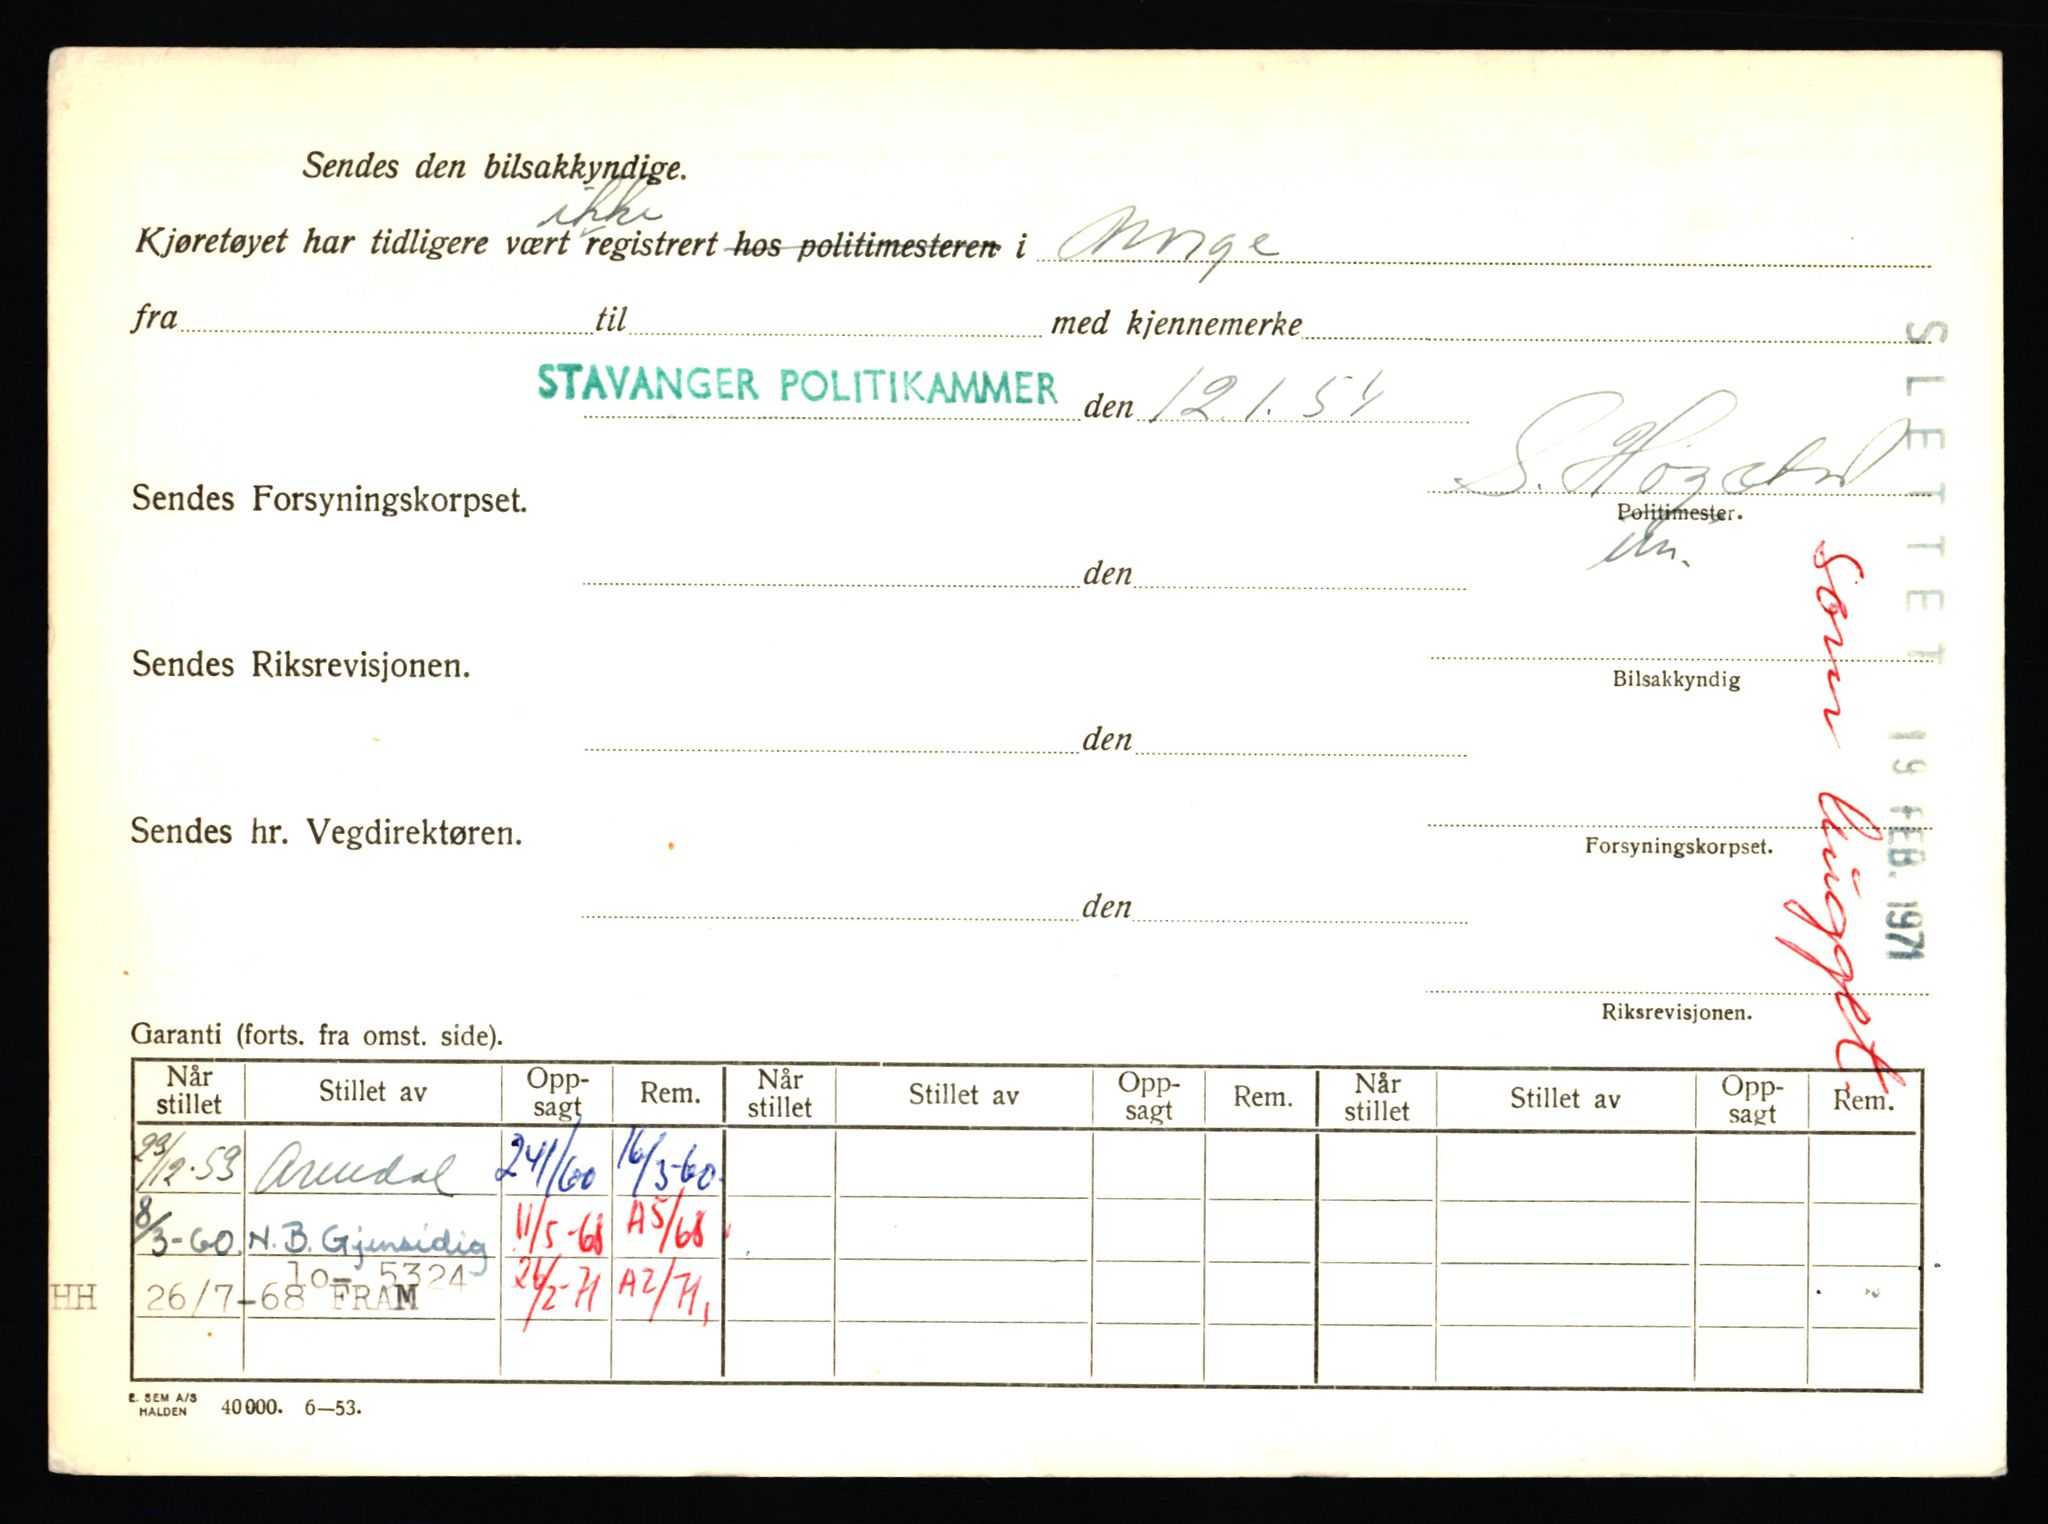 Sendes den bilsakkyndige.
ikke
Kjøretøyet har tidligere vært registrert hos politimesteren i Norge
fra til med kjennemerke
STAVANGER POLITIKAMMER den 12.1.54
Politimester.
Sendes Forsyningskorpset.
den
Bilsakkyndig
Sendes Riksrevisjonen.
den
Forsyningskorpset.
Sendes hr. Vegdirektøren.
den
Riksrevisjonen.
SLETTET 19 FEB. 1971
som hugget
Garanti (forts. fra omst. side).
Når stillet Stillet av Opp-sagt Rem. Når stillet Stillet av Opp-sagt Rem. Når stillet Stillet av Opp-sagt Rem.
23/12-53 Arendal 24/1/60 16/3-60
8/3-60 N.B. Gjensidig 11/5-68 A5/68
10- 5324
HH 26/7-68 FRAM 26/2-71 A2/71
E. SEM A/S
HALDEN 40000. 6—53.